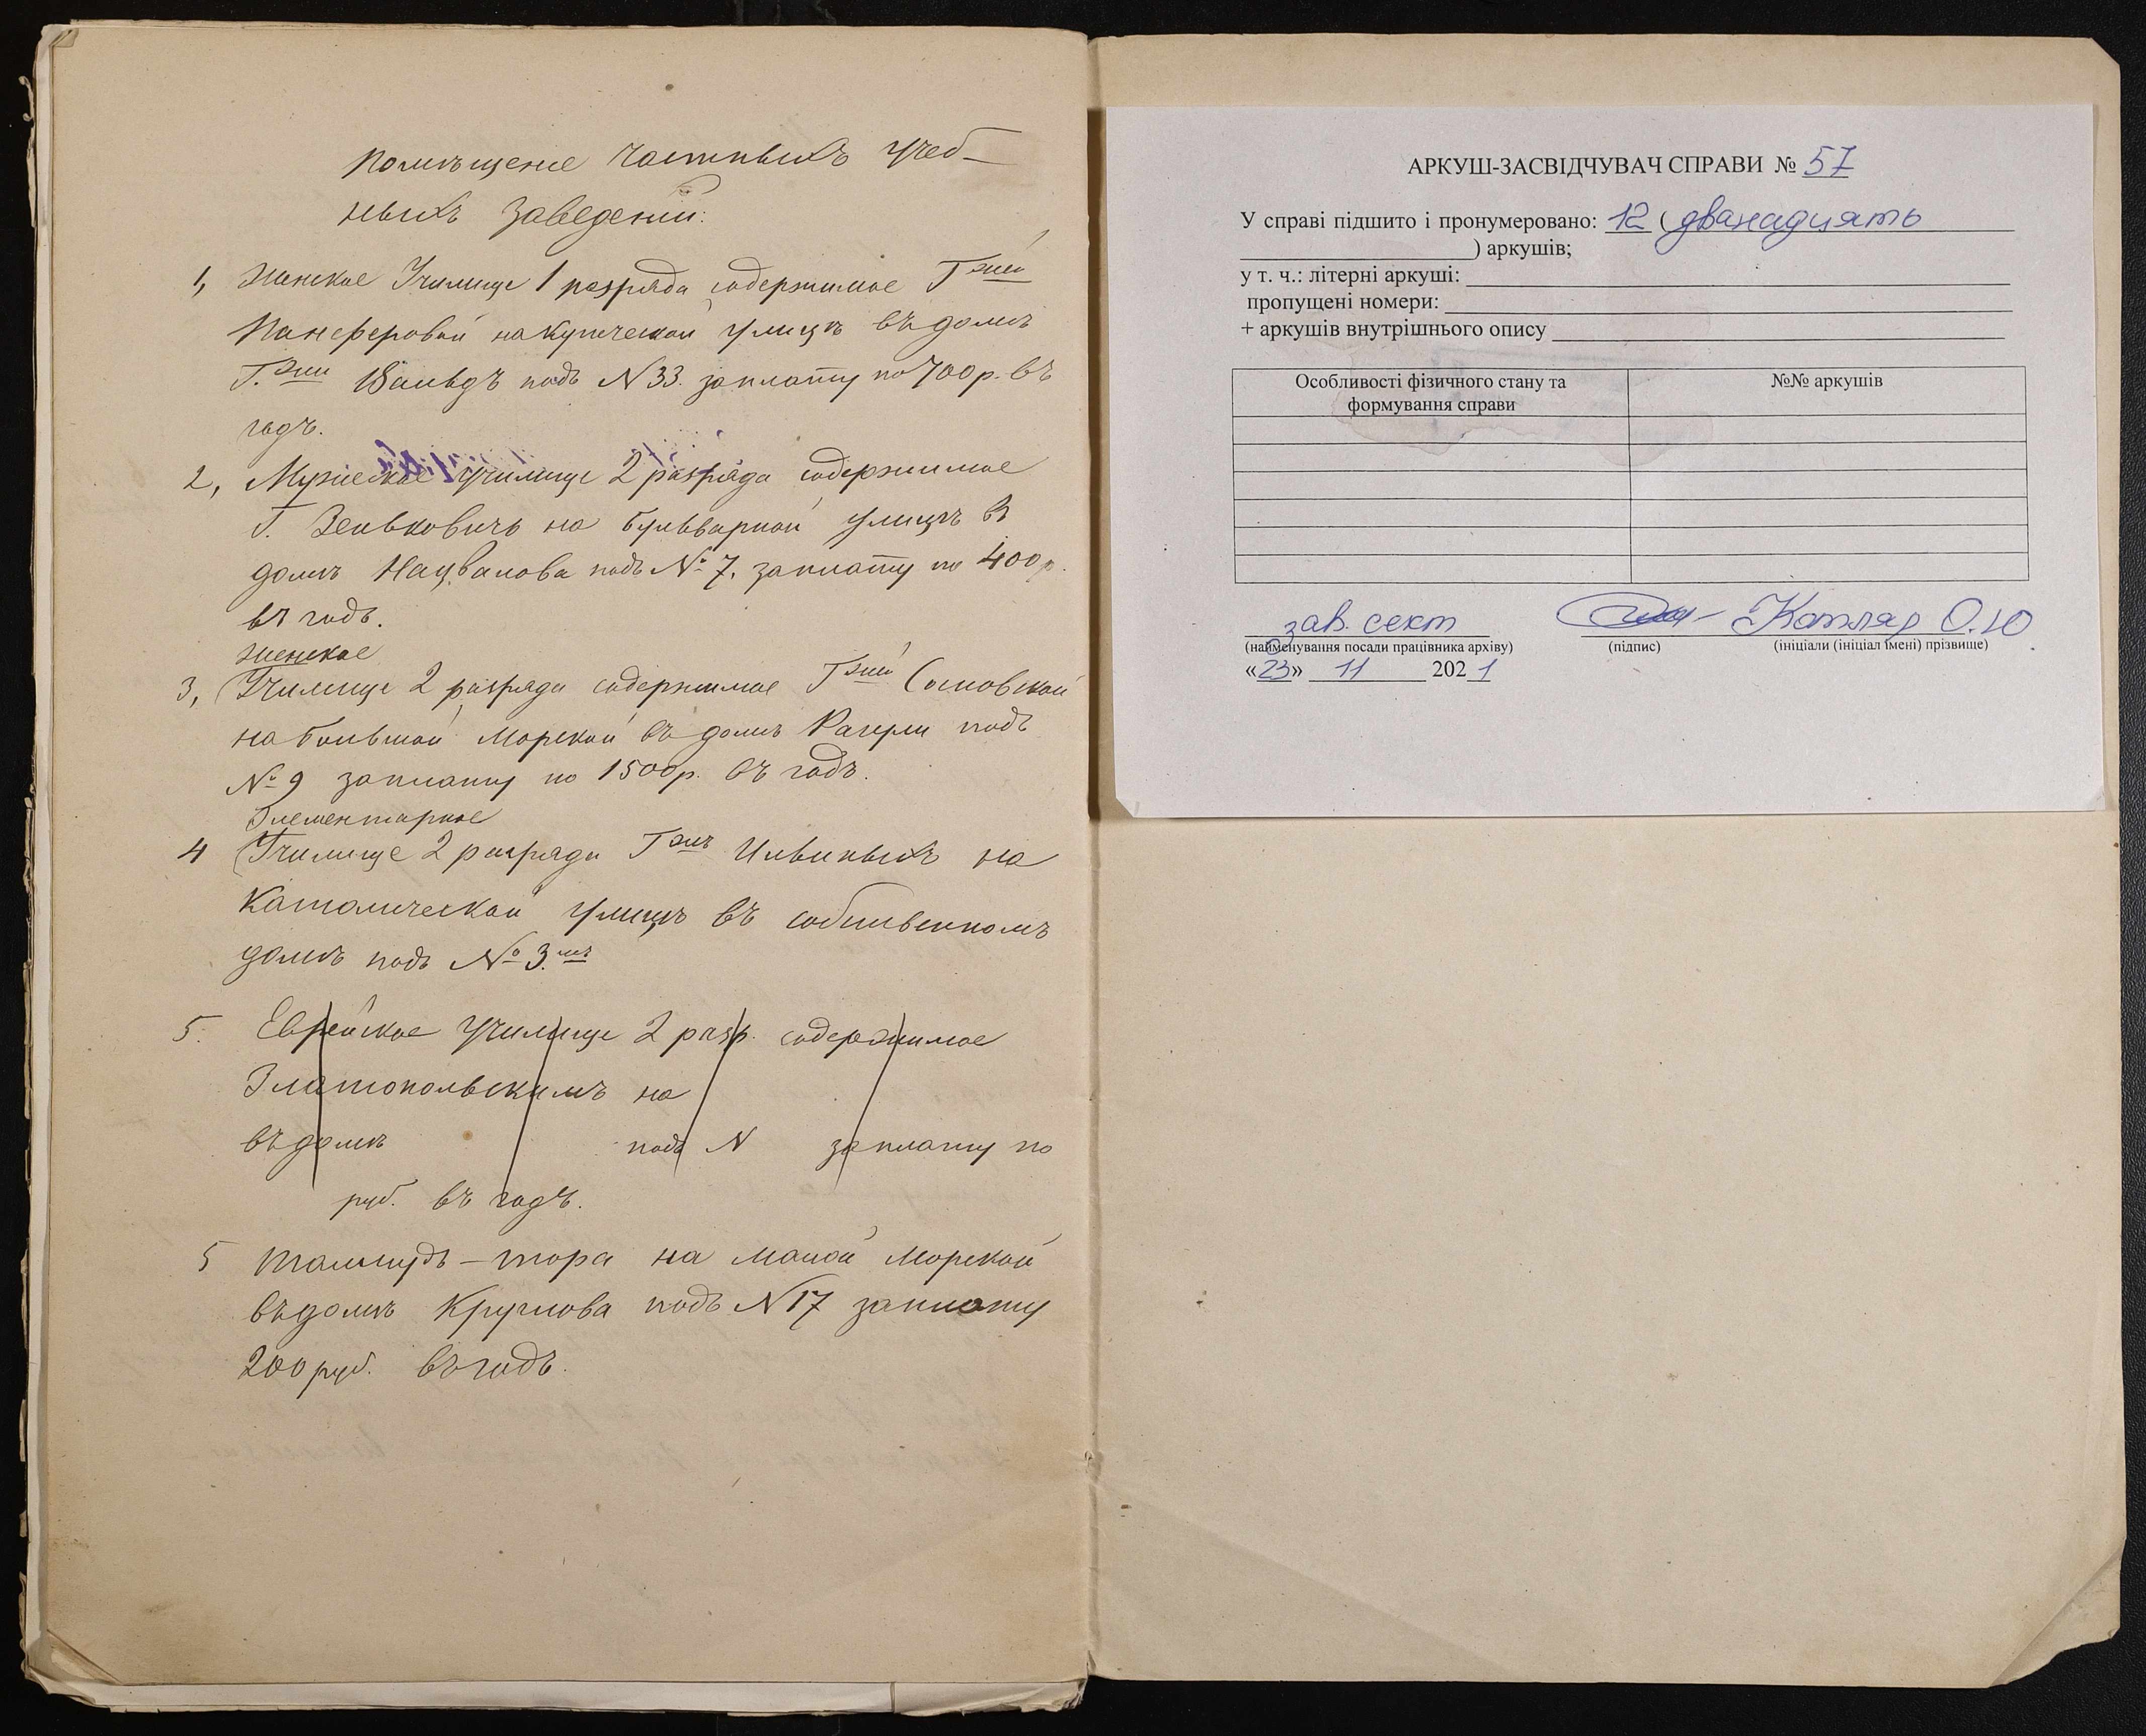 Помѣщеніе частныхъ учеб-
ныхъ заведеній:
1, Женское Училище 1 разряда содержимое Гжей
Панферовой на купеческой улицѣ въ домѣ
Г.жи подъ N 33. за плату по 700 р. въ
годъ.
2, Мужеское Училище 2 разряда содержимое
Г. Зеньковичъ на бульварной улицѣ въ
домѣ Нацвалова подъ № 7. за плату по 400 р.
въ годъ.
женское
3, Училище 2 разряда содержимое Гжей Сосновской
на большой Морской въ домѣ подъ
№ 9 за плату по 1500 р. въ годъ.
Элементарное
4 Училище 2 разряда Гжъ Ильиныхъ на
Католической улицѣ въ собственномъ
домѣ подъ № 3.мъ
5. Еврейское училище 2 разр. содержимое
Златопольскимъ на
въ домѣ подъ N за плату по
руб. въ годъ.
5 талмудъ-тора на малой Морской
въ домѣ Круглова подъ N 17 за плату
200 руб. въ годъ.
АРКУШ-ЗАСВІДЧУВАЧ СПРАВИ № 57
У справі підшито і пронумеровано: 12 (дванадцять
) аркушів;
у т. ч.: літерні аркуші:
пропущені номери:
+ аркушів внутрішнього опису
Особливості фізичного стану та
формування справи
№№ аркушів
зав. сект Котляр О.Ю
(найменування посади працівника архіву) (підпис) (ініціали (ініціал імені) прізвище)
«23» 11 2021